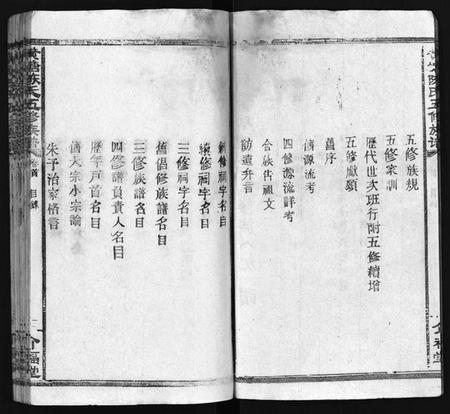 五修族規
五修家訓
歷代世次班行附五修續增
五修獻頌
舊序
淸源流考
四修源流詳考
合族告祖文
防遺弁言
創修祠字名目
續修祠字名目
三修祠字名目
舊倡修族譜名目
三修族譜名目
四修譜員責人名目
歷年戶首名目
大宗小宗論
朱子治家格言
陳氏五修族譜
卷首 目錄
介福堂
陳氏五修族譜
介福堂